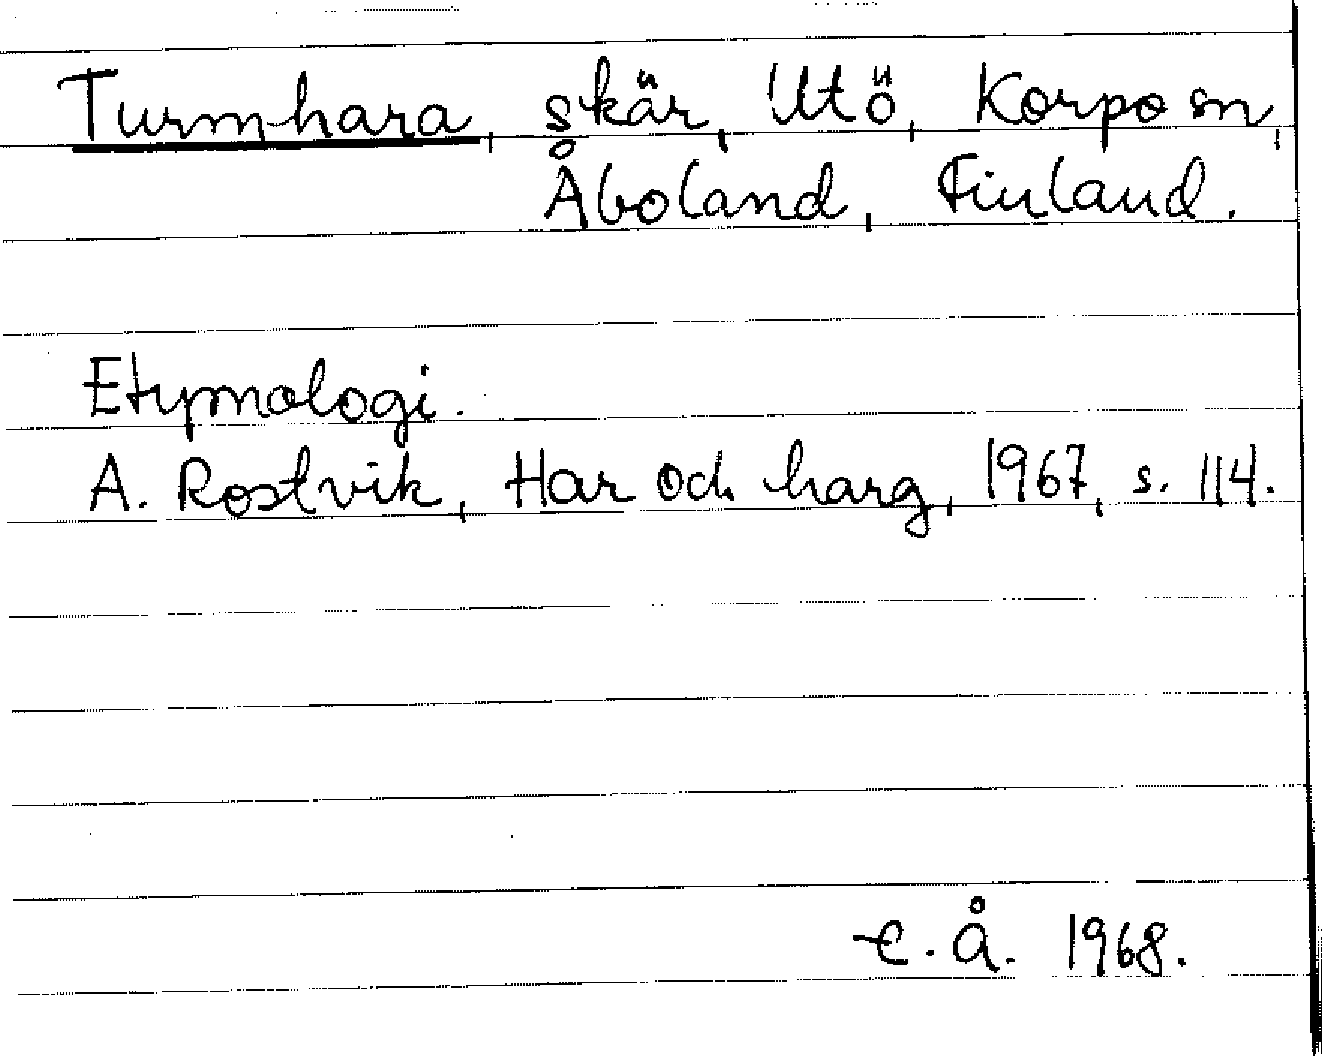 Turmhara, skär, Utö, Korpo sn,
Åboland, Finland.
Etymologi.
A. Rostvik, Har och harg, 1967, s. 114.
C. Å. 1968.